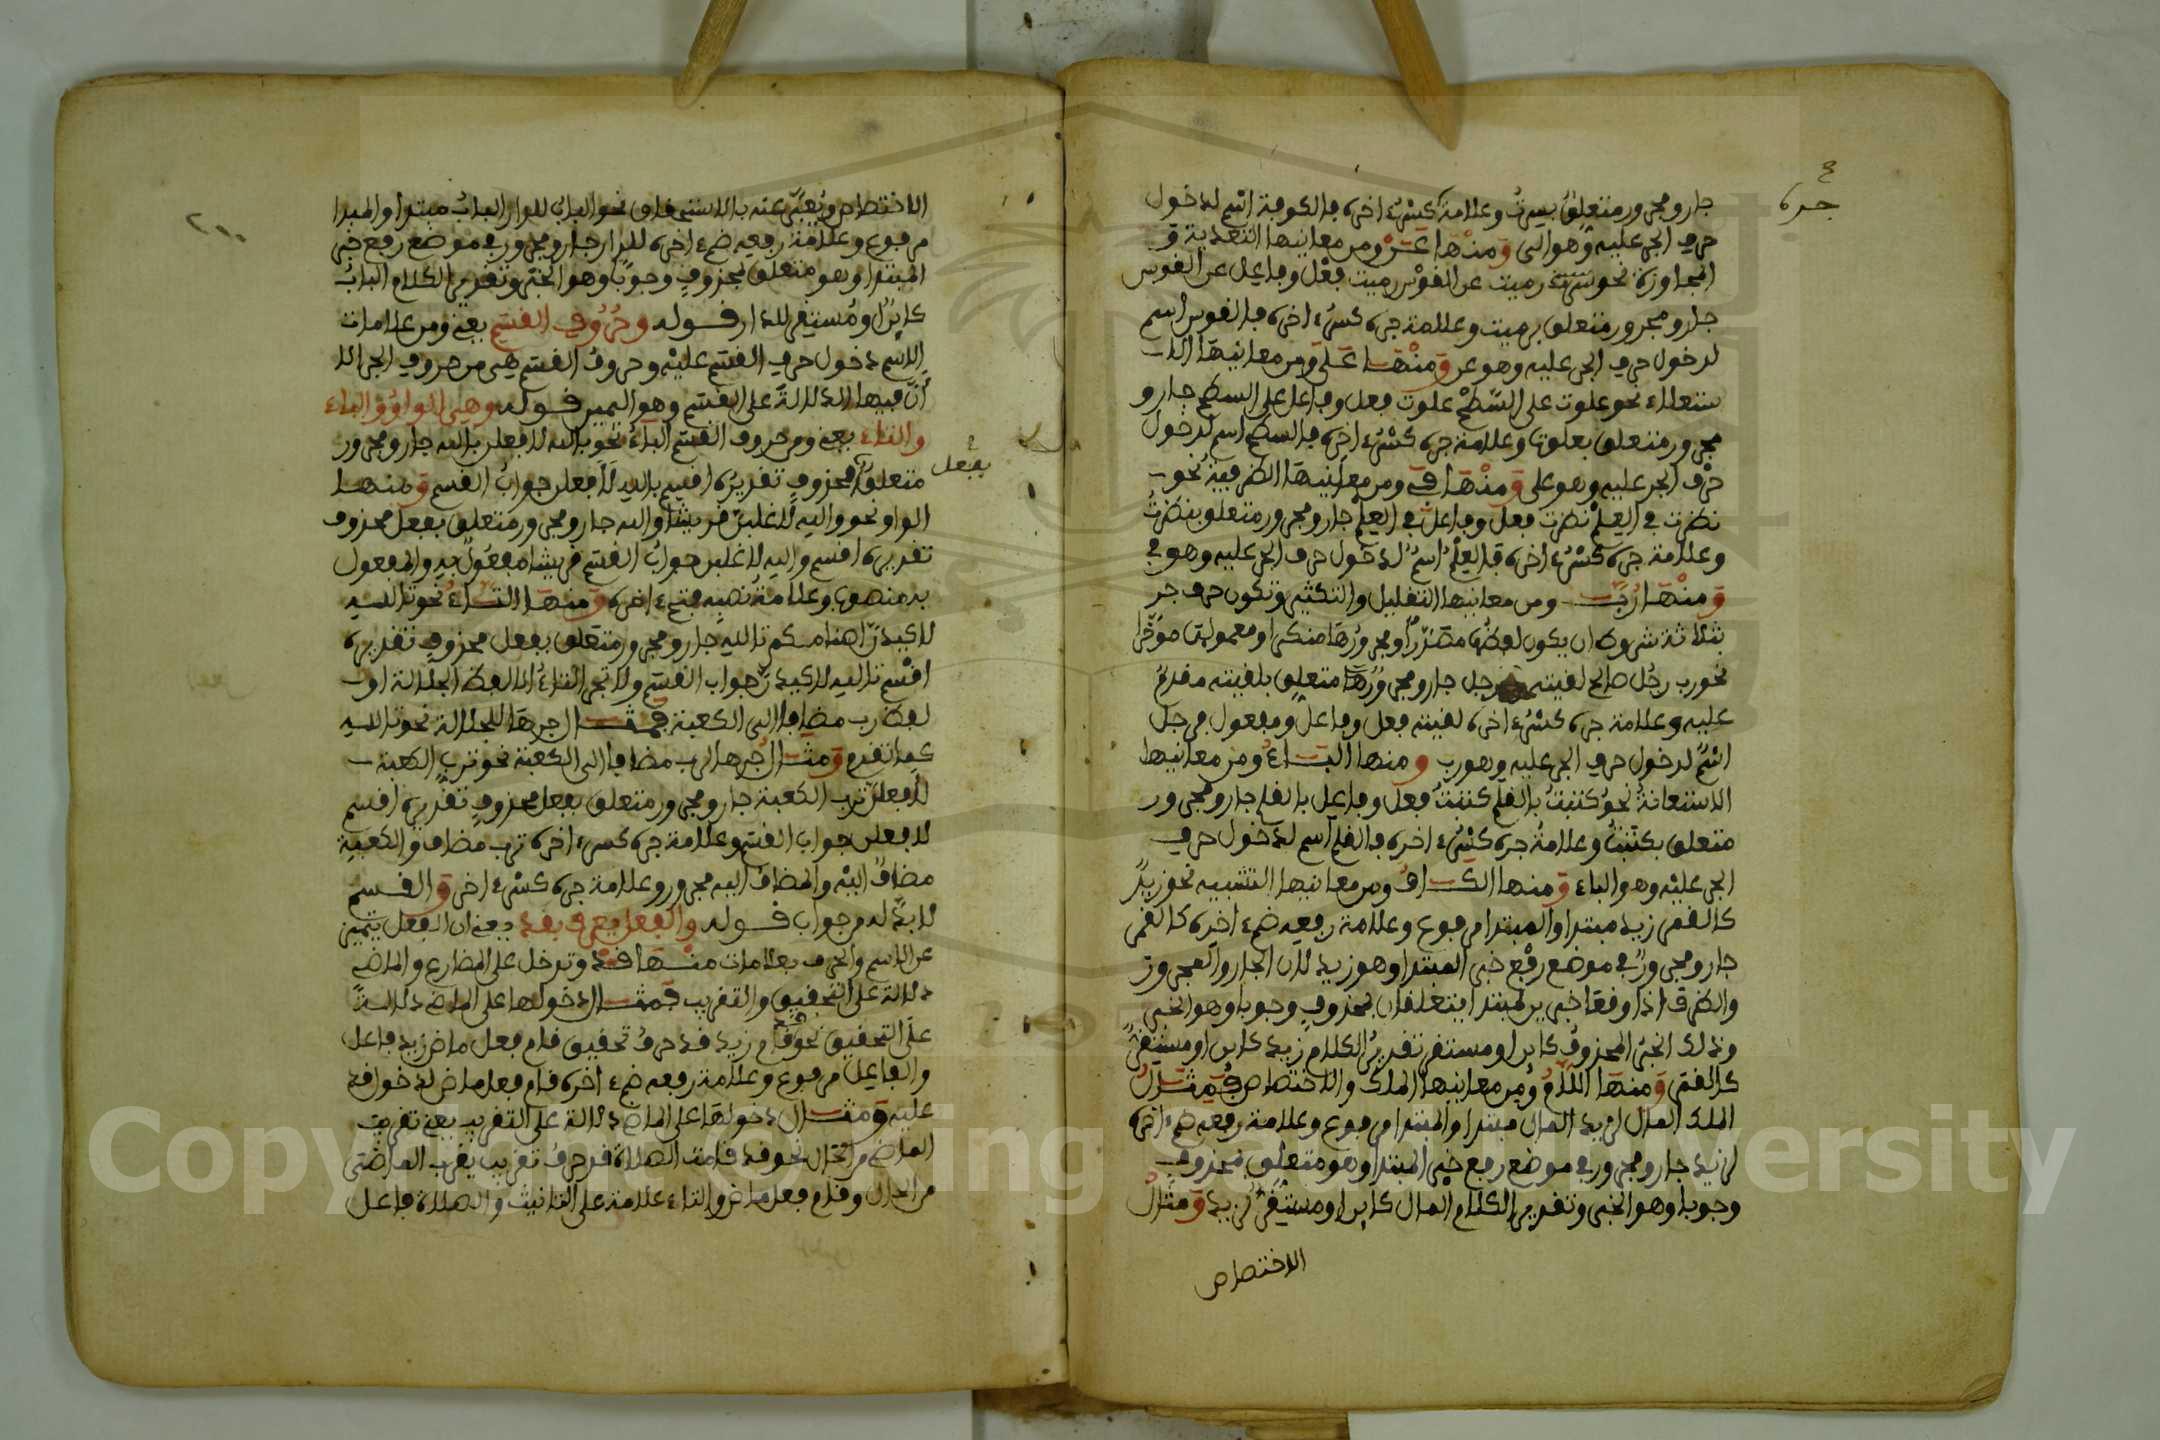 جار ومجرور متعلق بسرت وعلامة كسرة اخره فالكوفة اسم لدخول
جره
حرف الجر عليه وهو الى ومنها عن ومن معانيها التعدية و
المجاوزة نحو رميت عن القوس رميت فعل وفاعل عن القوس
جار ومجرور متعلق برميت وعلامة جره كسرة اخره فالقوس اسم
لدخول حرف الجر عليه وهو عن ومنها على ومن معانيها الا
ستعلاء نحو علوت على السطح علوت فعل وفاعل على السطح جار و
مجرور متعلق بعلوت وعلامة جره كسرة اخره فالسطح اسم لدخول
حرف الجر عليه وهو على ومنها في ومن معانيها الظرفية نحو
نظرت في العلم نظرت فعل وفاعل في العلم جار ومجرور متعلق بنظرت
وعلامة جره كسرة اخره فالعلم اسم لدخول حرف الجر عليه وهو في
ومنها رب ومن معانيها التقليل والتكثير وتكون حرف جر
بثلاثة شروط ان يكون لفظها مصدرا ومجرورها منكرا ومعمولها مؤخرا
نحو رب رجل صالح لقيته رجل جار ومجرورها متعلق بلقيته مقدم
عليه وعلامة جره كسرة اخره لقيته فعل وفاعل ومفعول فرجل
اسم لدخول حرف الجر عليه وهو رب ومنها الباء ومن معانيها
الاستعانة نحو كتبت بالقلم كتبت فعل وفاعل بالقلم جار ومجرور
متعلق بكتبت وعلامة جره كسرة اخره فالقلم اسم لدخول حرف
الجر عليه وهو الباء ومنها الكاف ومن معانيها التشبيه نحو زيد
كالقمر زيد مبتدا والمبتدا مرفوع وعلامة رفعه ضمة اخره كالقمر
جار ومجرور في موضع رفع خبر المبتدا وهو زيد لان الجار والمجرور
والظرف اذا وقعا خبرين لمبتدا يتعلقان بمحذوف وجوبا وهو الخبر
وذلك الخبر المحذوف كاين او مستقر تقدير الكلام زيد كاين او مستقر
كالقمر ومنها اللام ومن معانيها الملك والاختصاص فمثال
الملك المال لزيد المال مبتدا والمبتدا مرفوع وعلامة رفعه ضمة اخره
لزيد جار ومجرور في موضع رفع خبر المبتدا وهو متعلق بمحذوف
وجوبا وهو الخبر وتقدير الكلام المال كاين او مستقر لزيد ومثال
الاختصاص
الاختصاص ويعبر عنه بالاستحقاق نحو الباب للدار الباب مبتدا والمبتدا
مرفوع وعلامة رفعه ضمة اخره للدار جار ومجرور في موضع رفع خبر
المبتدا وهو متعلق بمحذوف وجوبا وهو الخبر وتقدير الكلام الباب
كاين او مستقر للدار قوله وحروف القسم يعني ومن علامات
الاسم دخول حرف القسم عليه وحروف القسم هي من حروف الجر الا
أن فيها الدلالة على القسم وهو اليمين قوله وهي الواو والباء
والتاء يعني ومن حروف القسم الباء نحو بالله لافعلن بالله جار ومجرور
بفعل
متعلق محذوف تقديره اقسم بالله لافعلن جواب القسم ومنها
الواو نحو والله لاغلبن قريشا والله جار ومجرور متعلق بفعل محذوف
تقديره اقسم والله لاغلبن جواب القسم قريشا مفعول به والمفعول
به منصوب وعلامة نصبه فتحة اخره ومنها التاء نحو تالله
لاكيدن اصنامكم تالله جار ومجرور متعلق بفعل محذوف تقديره
اقسم تالله لاكيدن جواب القسم ولا تجر التاء الا لفظ الجلالة او
لفظ رب مضافا الى الكعبة فمثال جرها للجلالة نحو تالله
كما تقدم ومثال جرها لرب مضافا الى الكعبة نحو ترب الكعبة
لافعلن ترب الكعبة جار ومجرور متعلق بفعل محذوف تقديره اقسم
لافعلن جواب القسم وعلامة جره كسرة اخره ترب مضاف والكعبة
مضاف اليه والمضاف اليه مجرور وعلامة جره كسرة اخره والقسم
لابد له من جواب قوله والفعل يعرف بقد يعني ان الفعل يتميز
عن الاسم والحرف بعلامات منها قد وتدخل على المضارع والماضي
دلالة على التحقيق والتقريب فمثال دخولها على الماضي دلالة
على التحقيق نحو قد قام زيد قد حرف تحقيق قام فعل ماض زيد فاعل
والفاعل مرفوع وعلامة رفعه ضمة اخره قام فعل ماض لدخول قد
عليه ومثال دخولها على الماضي دلالة على التقريب يعني تقريب
الماضي من الحال نحو قد قامت الصلاة قد حرف تقريب يقرب الماضي
من الحال وقام فعل ماض والتاء علامة على التانيث والصلاة فاعل
Copyright © King Saud University